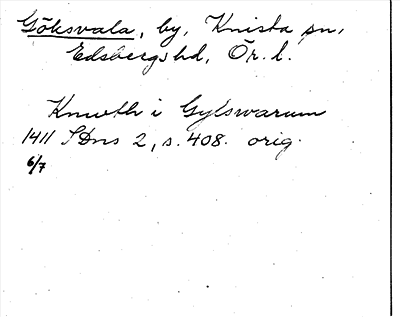 Göksvala, by, Knista sn,
Edsbergs hd, Ör. l.
Knwth i Gylswarum
1411 SDns 2, s. 408. orig.
6/7